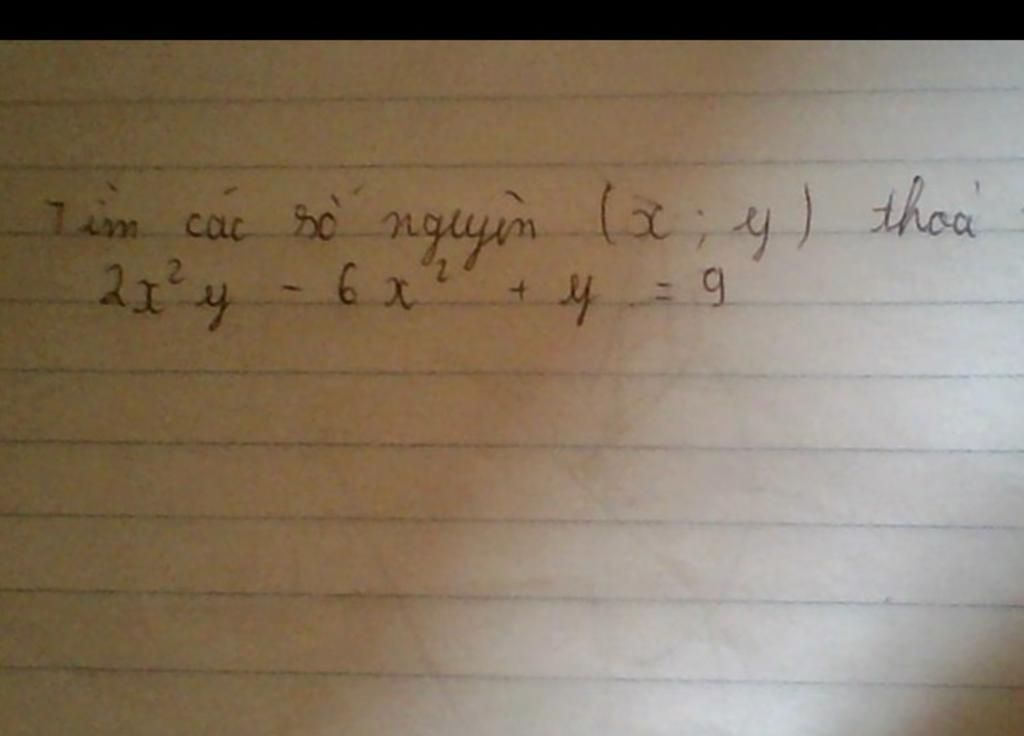 Tìm các số nguyên (x ; y) thoả
2x² y - 6x² + y = 9